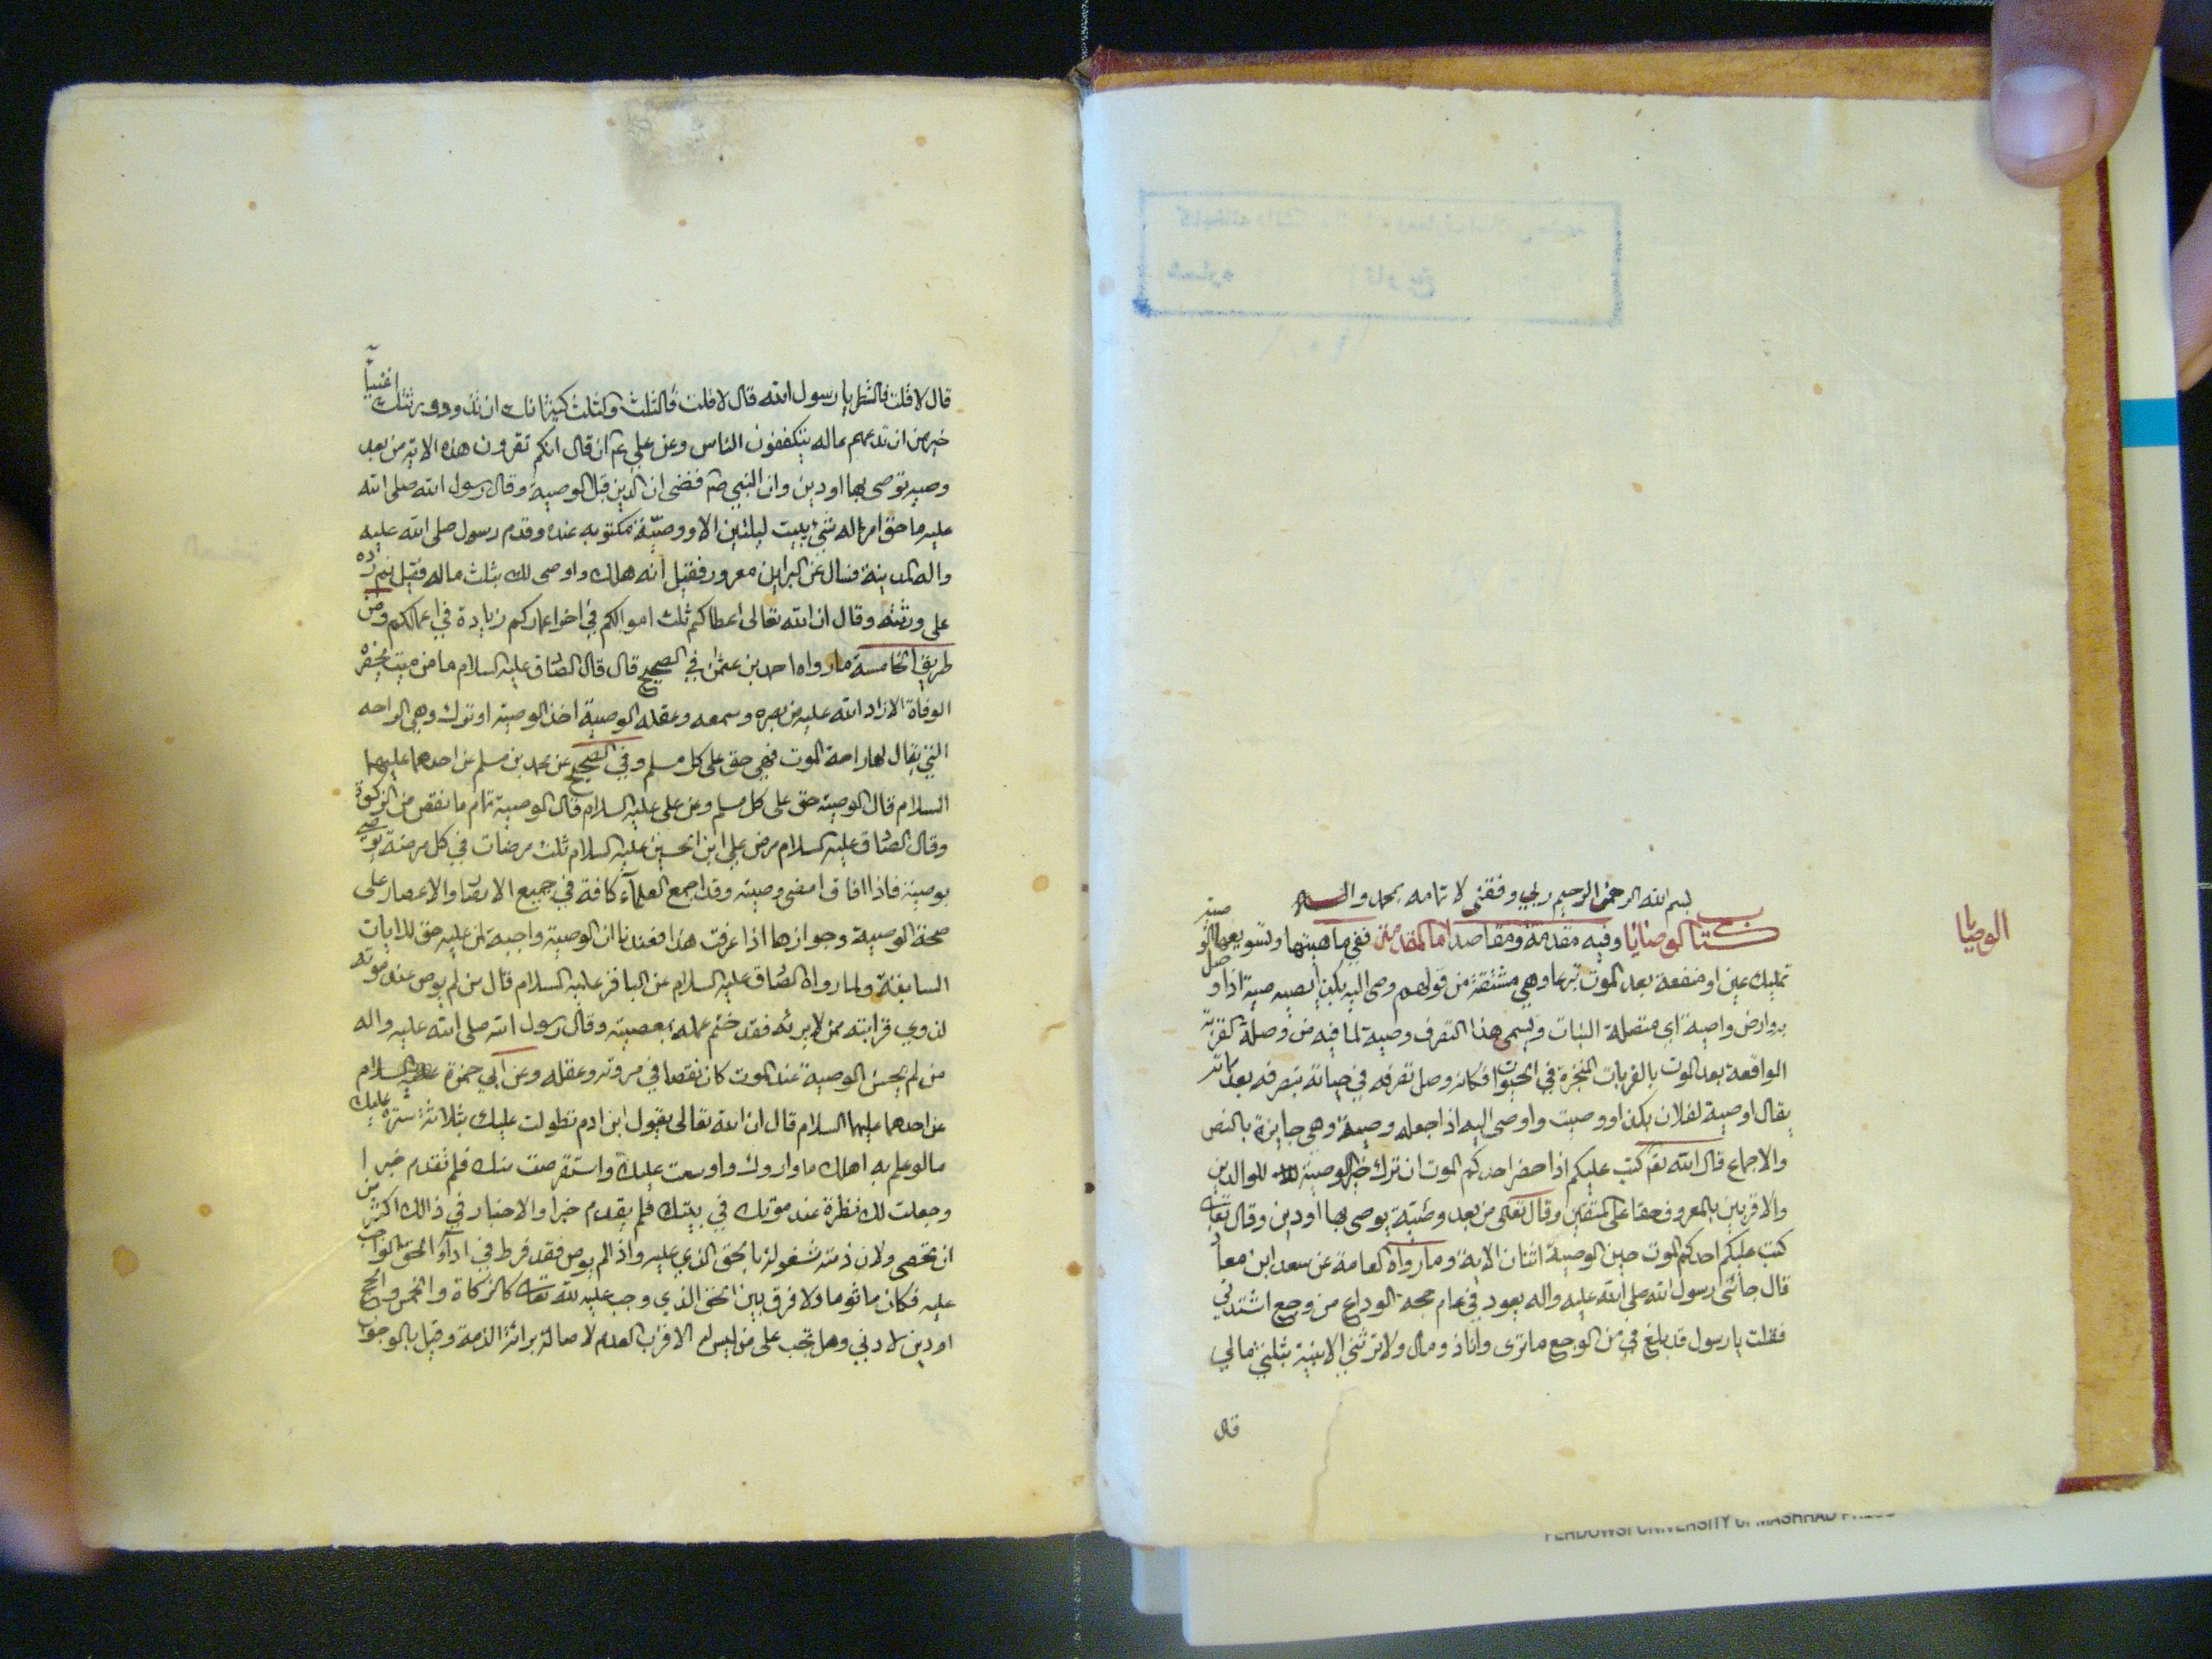 الوصايا
بسم الله الرحمن الرحيم ربي وفقني لاتمامه بمحمد واله
كتاب الوصايا وفيه مقدمة ومقاصد اما المقدمة ففي ماهيتها وتسويغها الوصية
تمليك عين او منفعة بعد الموت تبرعا وهي مشتقة من قولهم وصى اليه بكذا يصيه صية اذا وصل
به وارض واصية اي متصلة النبات ويسمى هذا التصرف وصية لما فيه من وصلة القربة
الواقعة بعد الموت بالقربات المنجزة في الحيوة فكانه وصل تصرفه في حياته بتصرفه بعد مماته
يقال اوصية لفلان بكذا ووصيت واوصى اليه اذا جعله وصية وهي جايزة بالنص
والاجماع قال الله تقم كتب عليكم اذا حضر احدكم الموت ان ترك خير الوصية للوالدين
والاقربين بالمعروف حقا على المتقين وقال تعلى من بعد وصية يوصى بها او دين وقال تعالى
كتب عليكم احدكم الموت حين الوصية اثنان الاية وما رواه العامة عن سعد ابن معاد
قال جائنى رسول الله صلى الله عليه واله يعود في عام حجه الوداع من وجع اشتد بي
فقلت يا رسول قد بلغ في من الوجع ما ترى وانا ذو مال ولا ترثني الا بنية بثلثي مالي
قال
قال لا قلت فالشطر يا رسول الله قال لا قلت فالثلث والثلث كثير انك ان تذر وورثتك اغنيآ
خير من ان تدعهم عاله يتكففون الناس وعن علي عم انه قال انكم تقرون هذه الاية من بعد
وصيه توصى بها او دين وان النبي صم قضى ان الدين قبل الوصية وقال رسول الله صلى الله
عليه ما حق امرء له شئ يبيت ليلتين الا ووصيّة مكتوبه عنده وقدم رسول صلى الله عليه
واله المدينة فسال عن البرا بن معرور فقيل انه هلك واوصى لك بثلث ماله فقبل ثم رده
على ورثته وقال ان الله تعالى اعطاكم ثلث اموالكم في اخر اعماركم زيادة في اعمالكم ومن
طريق الخامسة ما رواه احمد بن عثمن في الصحيح قال قال الصادق عليه السلام ما من ميت يحضره
الوفاة الا زاد الله عليه من بصره وسمعه وعقله الوصية اخذ الوصية او ترك وهي الراحه
التي يقال لها راحة الموت فهي حق على كل مسلم وفي الصحيح عن محمد بن مسلم عن احدهما عليهما
السلام قال الوصية حق على كل مسلم وعن على عليه السلام قال الوصية تمام ما نقص من الزكوة
وقال الصادق عليه السلام مرض علي ابن الحسين عليه السلام ثلث مرضات في كل مرضة يوصي
بوصية فاذا افاق امضى وصيته وقد اجمع العلمآء كافة في جميع الامصار والاعصار على
صحة الوصية وجوازها اذا عرفت هذا فعندنا ان الوصية واجبة لمن عليه حق للايات
السابقة ولما رواه الصادق عليه السلام عن الباقر عليه السلام قال من لم يوص عند موته
لذوي قرابته ممن لا يرثه فقد ختم عمله بمعصية وقال رسول الله صلى الله عليه واله
من لم يحسن الوصية عند الموت كان نقصا في مروته وعقله وعن ابي حمزة عليه السلام
عن احدهما عليهما السلام قال ان الله تعالى يقول ابن ادم تطولت عليك بثلاثة سترت عليك
ما لو علم به اهلك ما واروك واوسعت عليك واستقرضت منك فلم تقدم خيرا
وجعلت لك نظرة عند موتك في بيتك فلم يقدم خيرا والاخبار في ذالك اكثر من
ان تحصى ولان ذمته مشغولة بالحق الذي عليه واذا لم يوص فقد فرط في ادآء الحق الواجب
عليه فكان ماثوما ولا فرق بين الحق الذي وجب عليه لله تعالى كالزكاة والخمس والحج
او دين لادني وهل تجب على من ليس له الاقرب العدم لاصالة برائة الذمة وقيل بالوجوب
FERDOWSI UNIVERSITY of MASHHAD PRESS